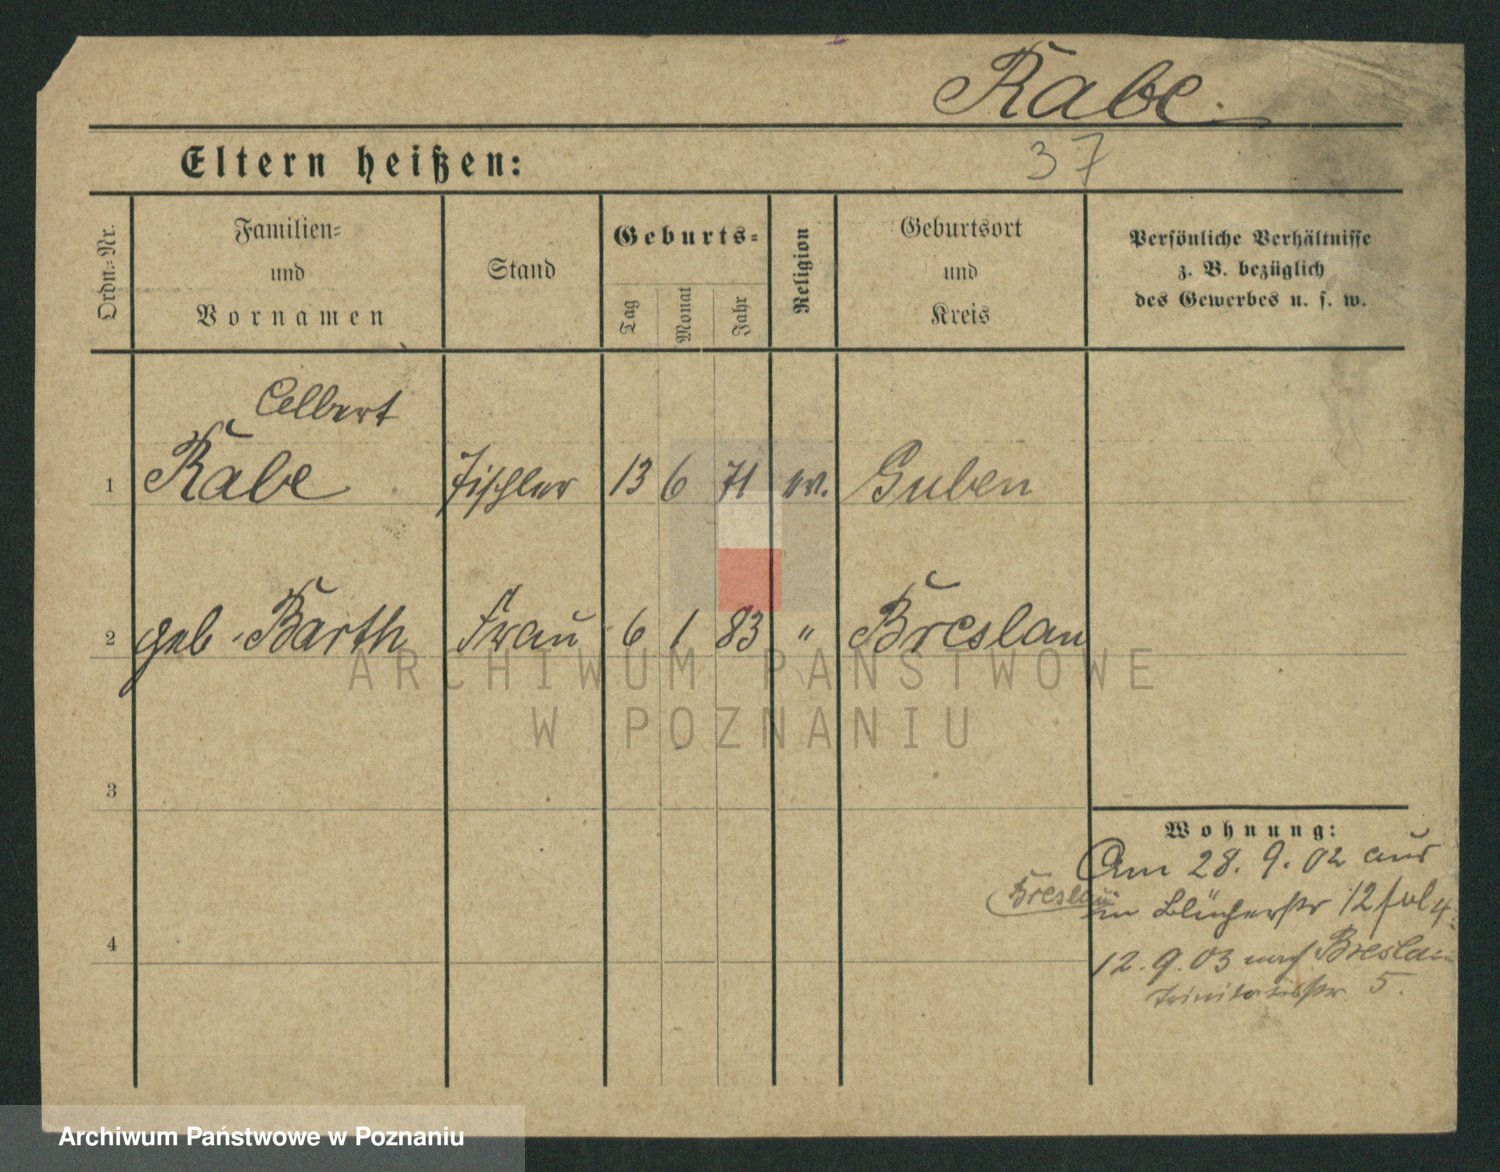 Rabe.
Eltern heißen:
37
Ordn.-Nr.
Familien-
und
Vornamen
Stand
Geburts-
Tag
Monat
Jahr
Religion
Geburtsort
und
Kreis
Persönliche Verhältnisse
z. B. bezüglich
des Gewerbes u. s. w.
Albert
1 Rabe Tischler 13 6 71 ev. Guben
2 geb. Barth Frau 6 1 83 " Breslau
ARCHIWUM PAŃSTWOWE
W POZNANIU
3
Wohnung:
Am 28. 9. 02 aus
Breslau
in Blücherstr 12
4
12. 9. 03 nach Breslau
Trinitatisstr. 5.
Archiwum Państwowe w Poznaniu